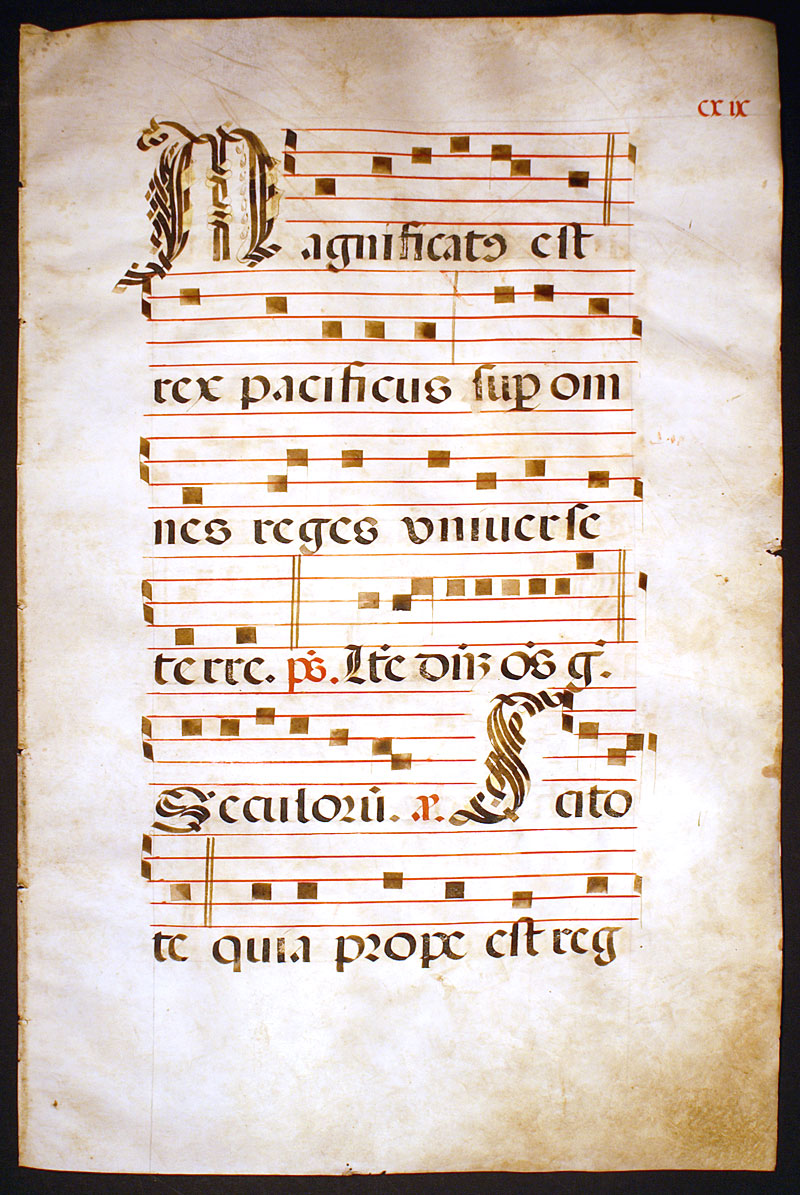 cx ix
Magnificatꝰ est
rex pacificus suꝑ om
nes reges vniuerse
terre. ps. Lt̄e
Seculorū. Scito
te quia prope est reg